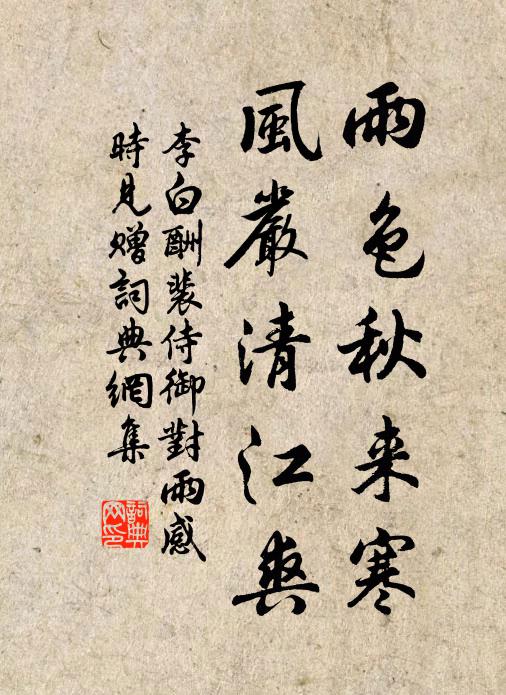 雨色秋来寒
風嚴清江爽
李白酬裴侍御對雨感
時見贈詞典網集
詞典
网印